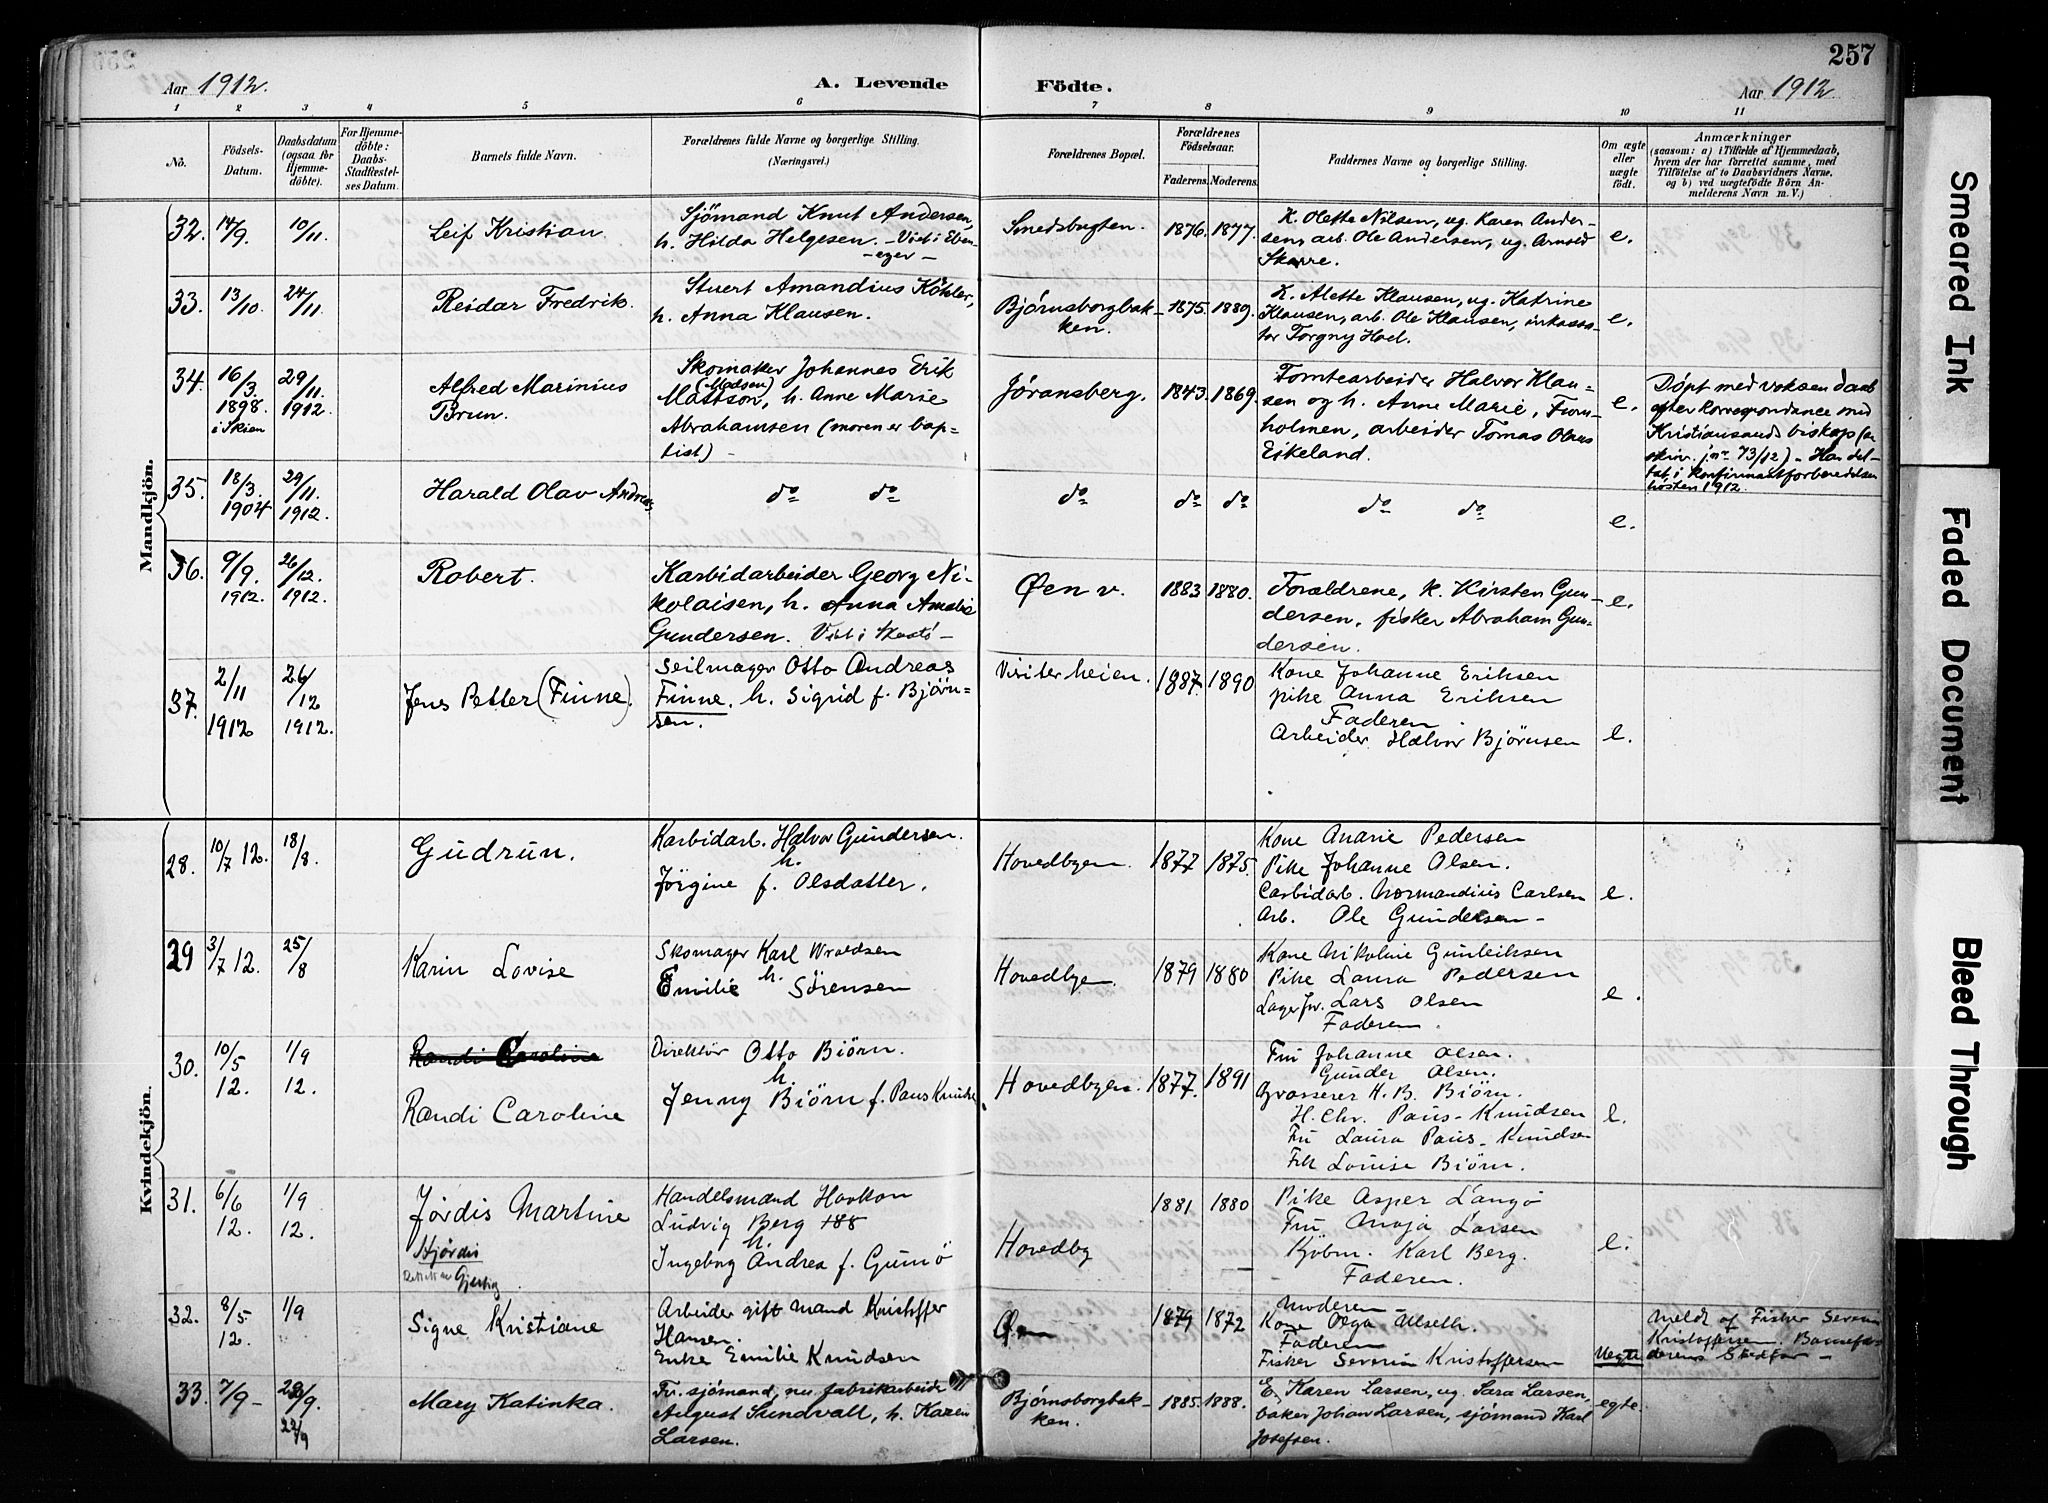 257
Aar 1912.
A. Levende Födte.
Aar 1912
1 2 3 4 5 6 7 8 9 10 11
No.
Födsels-
Datum.
Daabsdatum
(ogsaa for
Hjemme-
döbte).
For Hjemme-
döbte:
Daabs-
Stadfæstel-
ses Datum.
Barnets fulde Navn.
Forældrenes fulde Navne og borgerlige Stilling.
(Næringsvei.)
Forældrenes Bopæl.
Forældrenes
Födselsaar.
Faderens. Moderens.
Faddernes Navne og borgerlige Stilling.
Om ægte
eller
uægte
födt.
Anmærkninger
(saasom: a) i Tilfælde af Hjemmedaab,
hvem der har forrettet samme, med
Tilföielse af to Daabsvidners Navne,
og b) ved uægtefödte Börn An-
melderens Navn m. V.)
Mandkjön.
32. 14/9. 10/11. Leif Kristian.
Sjömand Knut Andersen,
h. Hilda Helgesen. - Viet i Eben-
-ezer-
Smedsbugten. 1876. 1877.
K. Olette Nilsen, ug. Karen Ander-
sen, arb. Ole Andersen, ug.
e.
33. 13/10. 24/11. Reidar Fredrik.
Stuert Amandius Köhler,
h. Anna Klausen.
Bjørnsborgbak-
ken.
1875. 1889.
K. Alette Klausen, ug. Katrine
Klausen, arb. Ole Klausen, inkassa-
tor Torgny Hoel.
e.
34. 16/3. 1898. i Skien 29/11. 1912.
Alfred Marinius
Brun.
Skomaker Johannes Erik
(Madsen)
Mattson, h. Anne Marie
Abrahamsen (moren er bap-
tist) -
Jøransberg. 1843. 1869.
Tomtearbeider Halvor Klau-
sen og h. Anne Marie, Furu-
holmen, arbeider Tomas Olaus
Eikeland.
e.
Døpt med voksen daab
efter korrespondance med
Kristiansands biskop (se
skriv. jnr 73/12) - Har del-
tat i konfirmantforberedelsen
høsten 1912.
35. 18/3. 1904 29/11. 1912.
Harald Olav Andreas
do do do do do do do
e.
36. 9/9. 1912. 26/12. 1912.
Robert.
Karbidarbeider Georg Ni-
kolaisen, h. Anna Amalie
Gundersen. Viet i
Øen v. 1883 1880.
Forældrene, K. Kirsten Gun-
dersen, fisker Abraham Gun-
dersen.
e.
37. 2/11 1912 26/12 1912.
Jens Petter (Finne).
Seilmager Otto Andreas
Finne. h. Sigrid f. Bjørn-
sen.
Visiterheien. 1887. 1890
Kone Johanne Eriksen
pike Anna Eriksen
Faderen
Arbeider Halvor Bjørnsen
e.
Kvindekjön.
28. 10/7 12. 18/8. Gudrun.
Karbidarb. Halvor Gundersen.
h.
Jörgine f. Olsdatter.
Hovedbyen. 1877 1875.
Kone Anarie Pedersen
Pike Johanne Olsen.
Carbidarb. Normandius Carlsen
Arb. Ole Gundersen -
e.
29 3/7 12. 25/8 Karin Lovise
Skomager Karl Wraldsen
h.
Emilie Sörensen
Hovedbyen. 1879 1880
Kone Nikoline Gunleiksen
Pike Laura Pedersen
Lagerfor. Lars Olsen
Faderen.
e.
30. 10/5 12. 1/9 12.
Randi Caroline
Randi Caroline
Direktör Otto Biörn.
h.
Jenny Biörn f. Paus Knudsen
Hovedbyen. 1877. 1891
Fru Johanne Olsen.
Gunder Olsen.
Grosserer H. B. Biörn.
H. Chr. Paus-Knudsen
Fru Laura Paus-Knudsen
Frk Louise Biörn.
e.
31. 6/6 12. 1/9 12.
Jördis Martine
Hjördis
Handelsmand Haakon
Ludvig Berg 188
h.
Ingeborg Andrea f. Gumö
Hovedby 1881 1880
Pike Asper Langö
Fru Maja Larsen
Kjöbm. Karl Berg.
Faderen.
e.
32. 8/5. 12. 1/9
Signe Kristiane
Arbeider gift mand Kristoffer
Hansen.
Enke Emilie Knudsen
Øen 1879 1872
Moderen -
Kone Olga Ulseth.
Faderen
Fisker Severin Kristoffersen
Uegte
Meldt af Fisker Severin
Kristoffersen. Barnefa-
derens Stedfar -
33. 7/9 - 29/9. 22/9
Mary Katinka.
Fv. sjömand, nu fabrikarbeider
August Sundvall, h. Karen
Larsen.
Bjørnsborgbak-
ken.
1885. 1888.
E. Karen Larsen, ug. Sara Larsen,
baker Johan Larsen, sjömand Karl
Josefsen.
egte.
Smeared Ink
Faded Document
Bleed Through